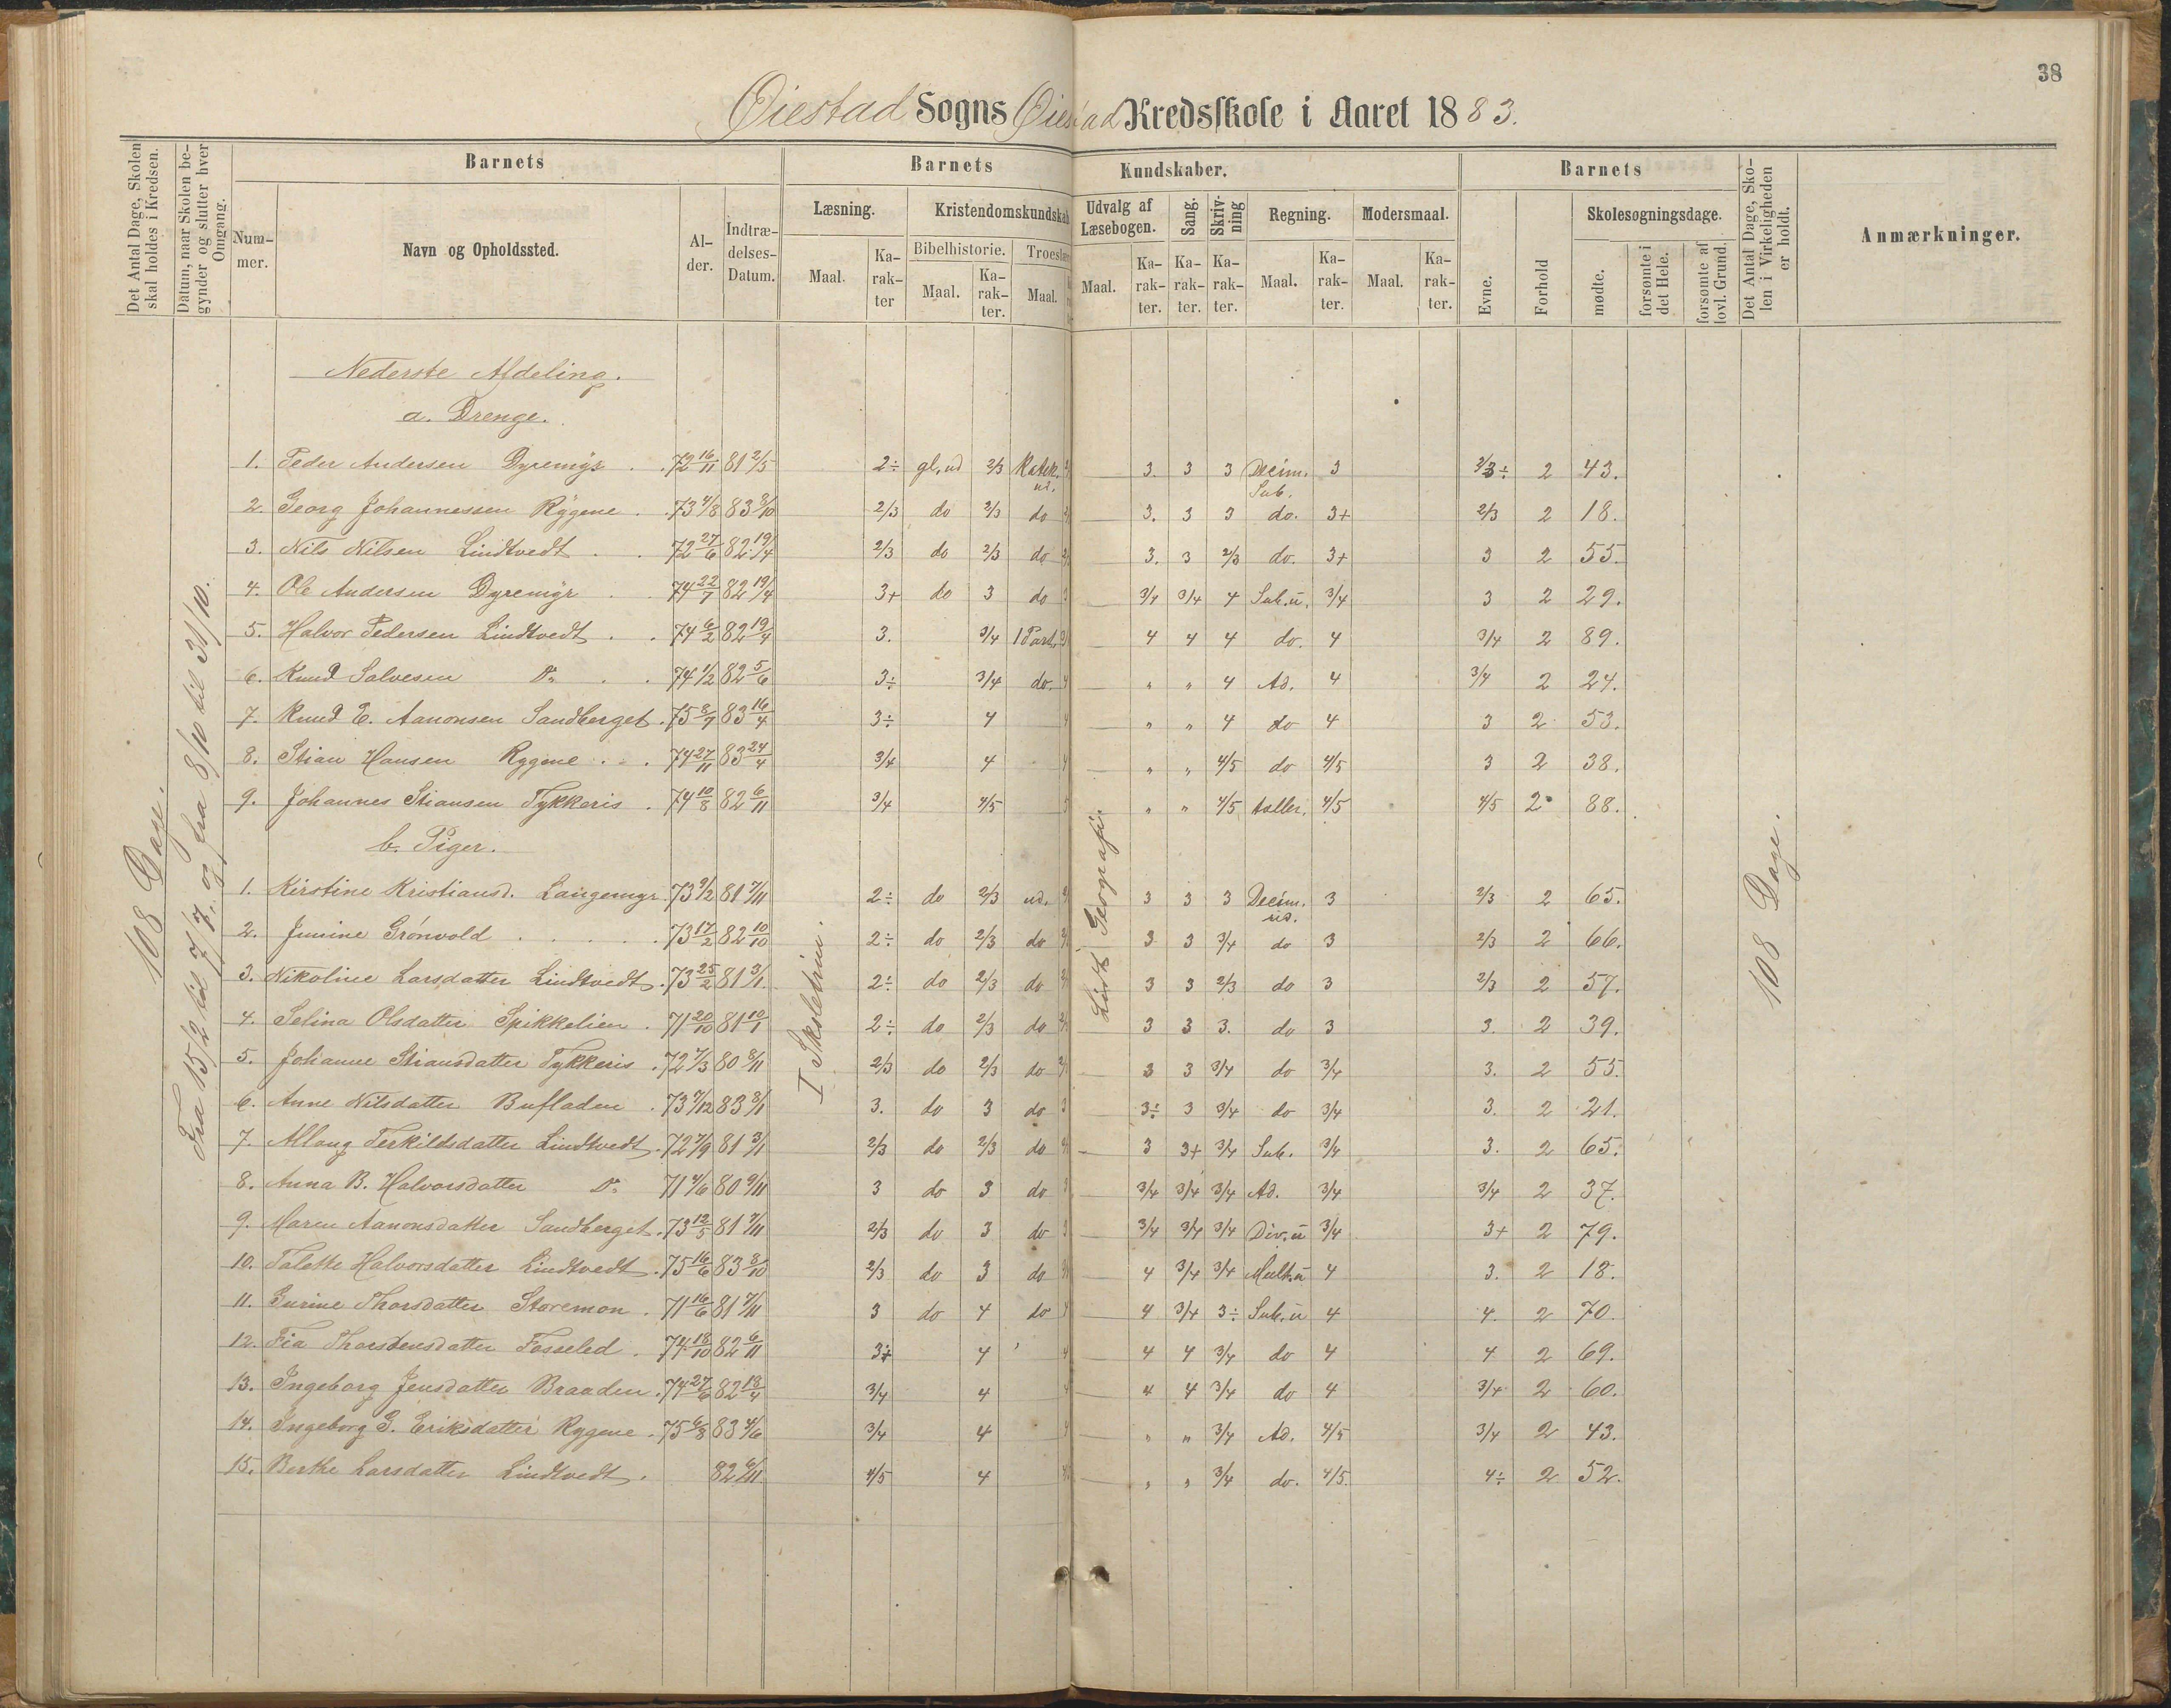 38
Øiestad Sogns Øiestad Kredsskole i Aaret 1883.
Det Antal Dage, Skolen skal holdes i Kredsen.
Datum, naar Skolen begynder og slutter hver Omgang.
Barnets
Barnets Kundskaber.
Barnets
Det Antal Dage, Skolen i Virkeligheden er holdt.
Anmærkninger.
Nummer. Navn og Opholdssted. Alder. Indtrædelses-Datum.
Læsning. Kristendomskundskab Udvalg af Læsebogen. Sang. Skrivning Regning. Modersmaal. Evne. Forhold Skolesøgningsdage.
Bibelhistorie. Troeslære
Maal. Karakter Maal. Karakter. Maal. Maal. Karakter. Karakter. Karakter. Maal. Karakter. Maal. Karakter. mødte. forsømte i det Hele. forsømte af lovl. Grund.
108 Dage.
Fra 15/2 til 7/7. og fra 8/10 til 31/10.
I Skoletrin.
Lidt Geografi.
108 Dage.
Nederste Afdeling.
a. Drenge.
1. Peder Andersen Dyremyr 72 16/11 81 2/5 2÷ gl, ud 2/3 Katek. ud. 3. 3 3 Decim. Sub. 3 2/3÷ 2 43.
2. Georg Johannessen Rygene 73 4/8 83 8/10 2/3 do 2/3 do 3. 3 3 do. 3+ 2/3 2 18.
3. Nils Nilsen Lindtvedt 72 27/6 82 19/4 2/3 do 2/3 do 3. 3 2/3 do. 3+ 3 2 55.
4. Ole Andersen Dyremyr 74 22/7 82 19/4 3+ do 3 do 3/4 3/4 4 Sub. u. 3/4 3 2 29.
5. Halvor Pedersen Lindtvedt 74 6/2 82 19/4 3. 3/4 1 Part. 4 4 4 do. 4 3/4 2 89.
6. Knud Salvesen Do 74 1/2 82 5/6 3÷ 3/4 do. " " 4 Ad. 4 3/4 2 24.
7. Knud E. Aanonsen Sandberget 75 8/7 83 16/4 3÷ 4 " " 4 do 4 3 2 53.
8. Stian Hansen Rygene 74 27/11 83 24/4 3/4 4 " " 4/5 do 4/5 3 2 38.
9. Johannes Stiansen Tykkeris 74 10/8 82 6/11 3/4 4/5 " " 4/5 taller. 4/5 4/5 2 88.
b. Piger.
1. Kirstine Kristiansd. Langemyr 73 9/2 81 7/11 2÷ do 2/3 ud. 3 3 3 Decim. ud. 3 2/3 2 65.
2. Junine Grönvold 73 17/2 82 10/10 2÷ do 2/3 do 3 3 3/4 do 3 2/3 2 66.
3. Nikoline Larsdatter Lindtvedt 73 25/2 81 3/1 2÷ do 2/3 do 3 3 2/3 do 3 2/3 2 57.
4. Selina Olsdatter Spikkelien 71 20/10 81 10/1 2÷ do 2/3 do 3 3 3. do 3 3. 2 39.
5. Johanne Stiansdatter Tykkeris 72 7/3 80 8/11 2/3 do 2/3 do 3 3 3/4 do 3/4 3. 2 55.
6. Anne Nilsdatter Bufladen 73 7/12 83 8/1 3. do 3 do 3÷ 3 3/4 do 3/4 3. 2 21.
7. Allaug Terkildsdatter Lindtvedt 72 7/9 81 3/1 2/3 do 2/3 do 3 3+ 3/4 Sub. 3/4 3. 2 65.
8. Anna B. Halvorsdatter Do 71 4/6 80 9/11 3 do 3 do 3/4 3/4 3/4 Ad. 3/4 3/4 2 37.
9. Maren Aanonsdatter Sandberget 73 12/5 81 7/11 2/3 do 3 do 3/4 3/4 3/4 Div. u 3/4 3+ 2 79.
10. Talette Halvorsdatter Lindtvedt 75 16/6 83 8/10 2/3 do 3 do 4 3/4 3/4 Mult. u 4 3. 2 18.
11. Gurine Thorsdatter Storemon 71 16/6 81 7/11 3 do 4 do 4 3/4 3÷ Sub. u 4 4. 2 70.
12. Fia Thorstensdatter Fosseled 74 18/10 82 6/11 3÷ 4 4 4 3/4 do 4 4 2 69.
13. Ingeborg Jensdatter Braaden 74 27/6 82 18/4 3/4 4 4 4 3/4 do 4 3/4 2 60.
14. Ingeborg G. Eriksdatter Rygene 75 6/8 83 4/6 3/4 4 " " 3/4 Ad. 4/5 3/4 2 43.
15. Berthe Larsdatter Lindtvedt 82 6/11 4/5 4 " " 3/4 do. 4/5. 4÷ 2 52.